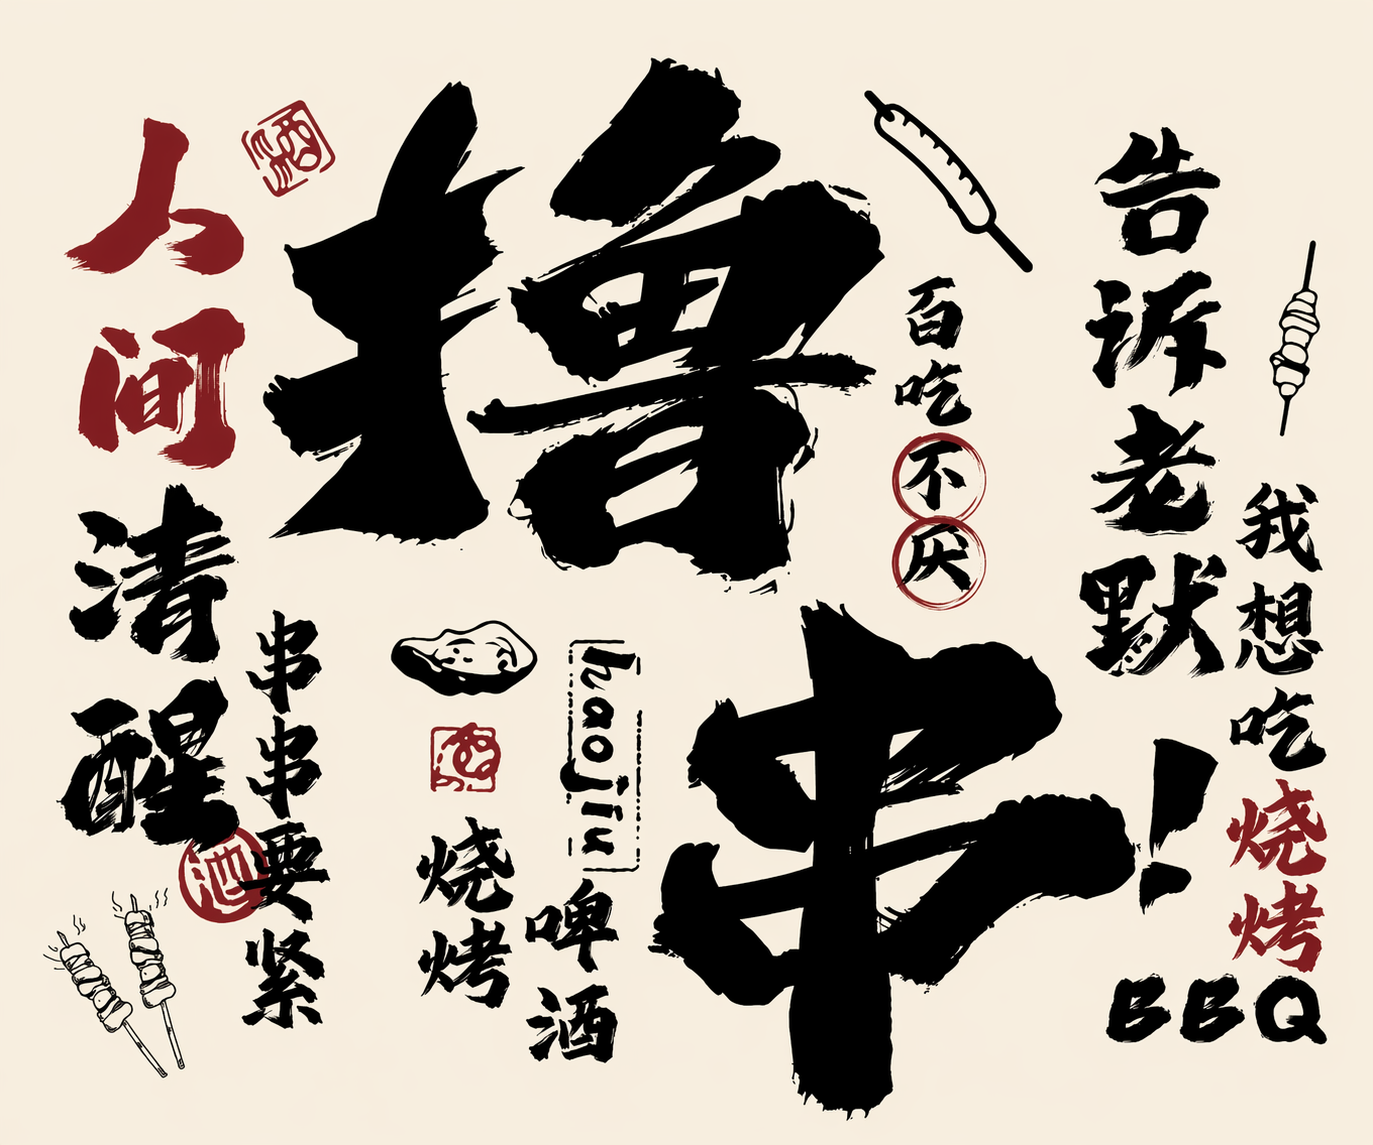 人间清醒
酒
撸串!
串串要紧
haojiu
烧烤
啤酒
百吃不厌
告诉老默
我想吃烧烤
BBQ
酒